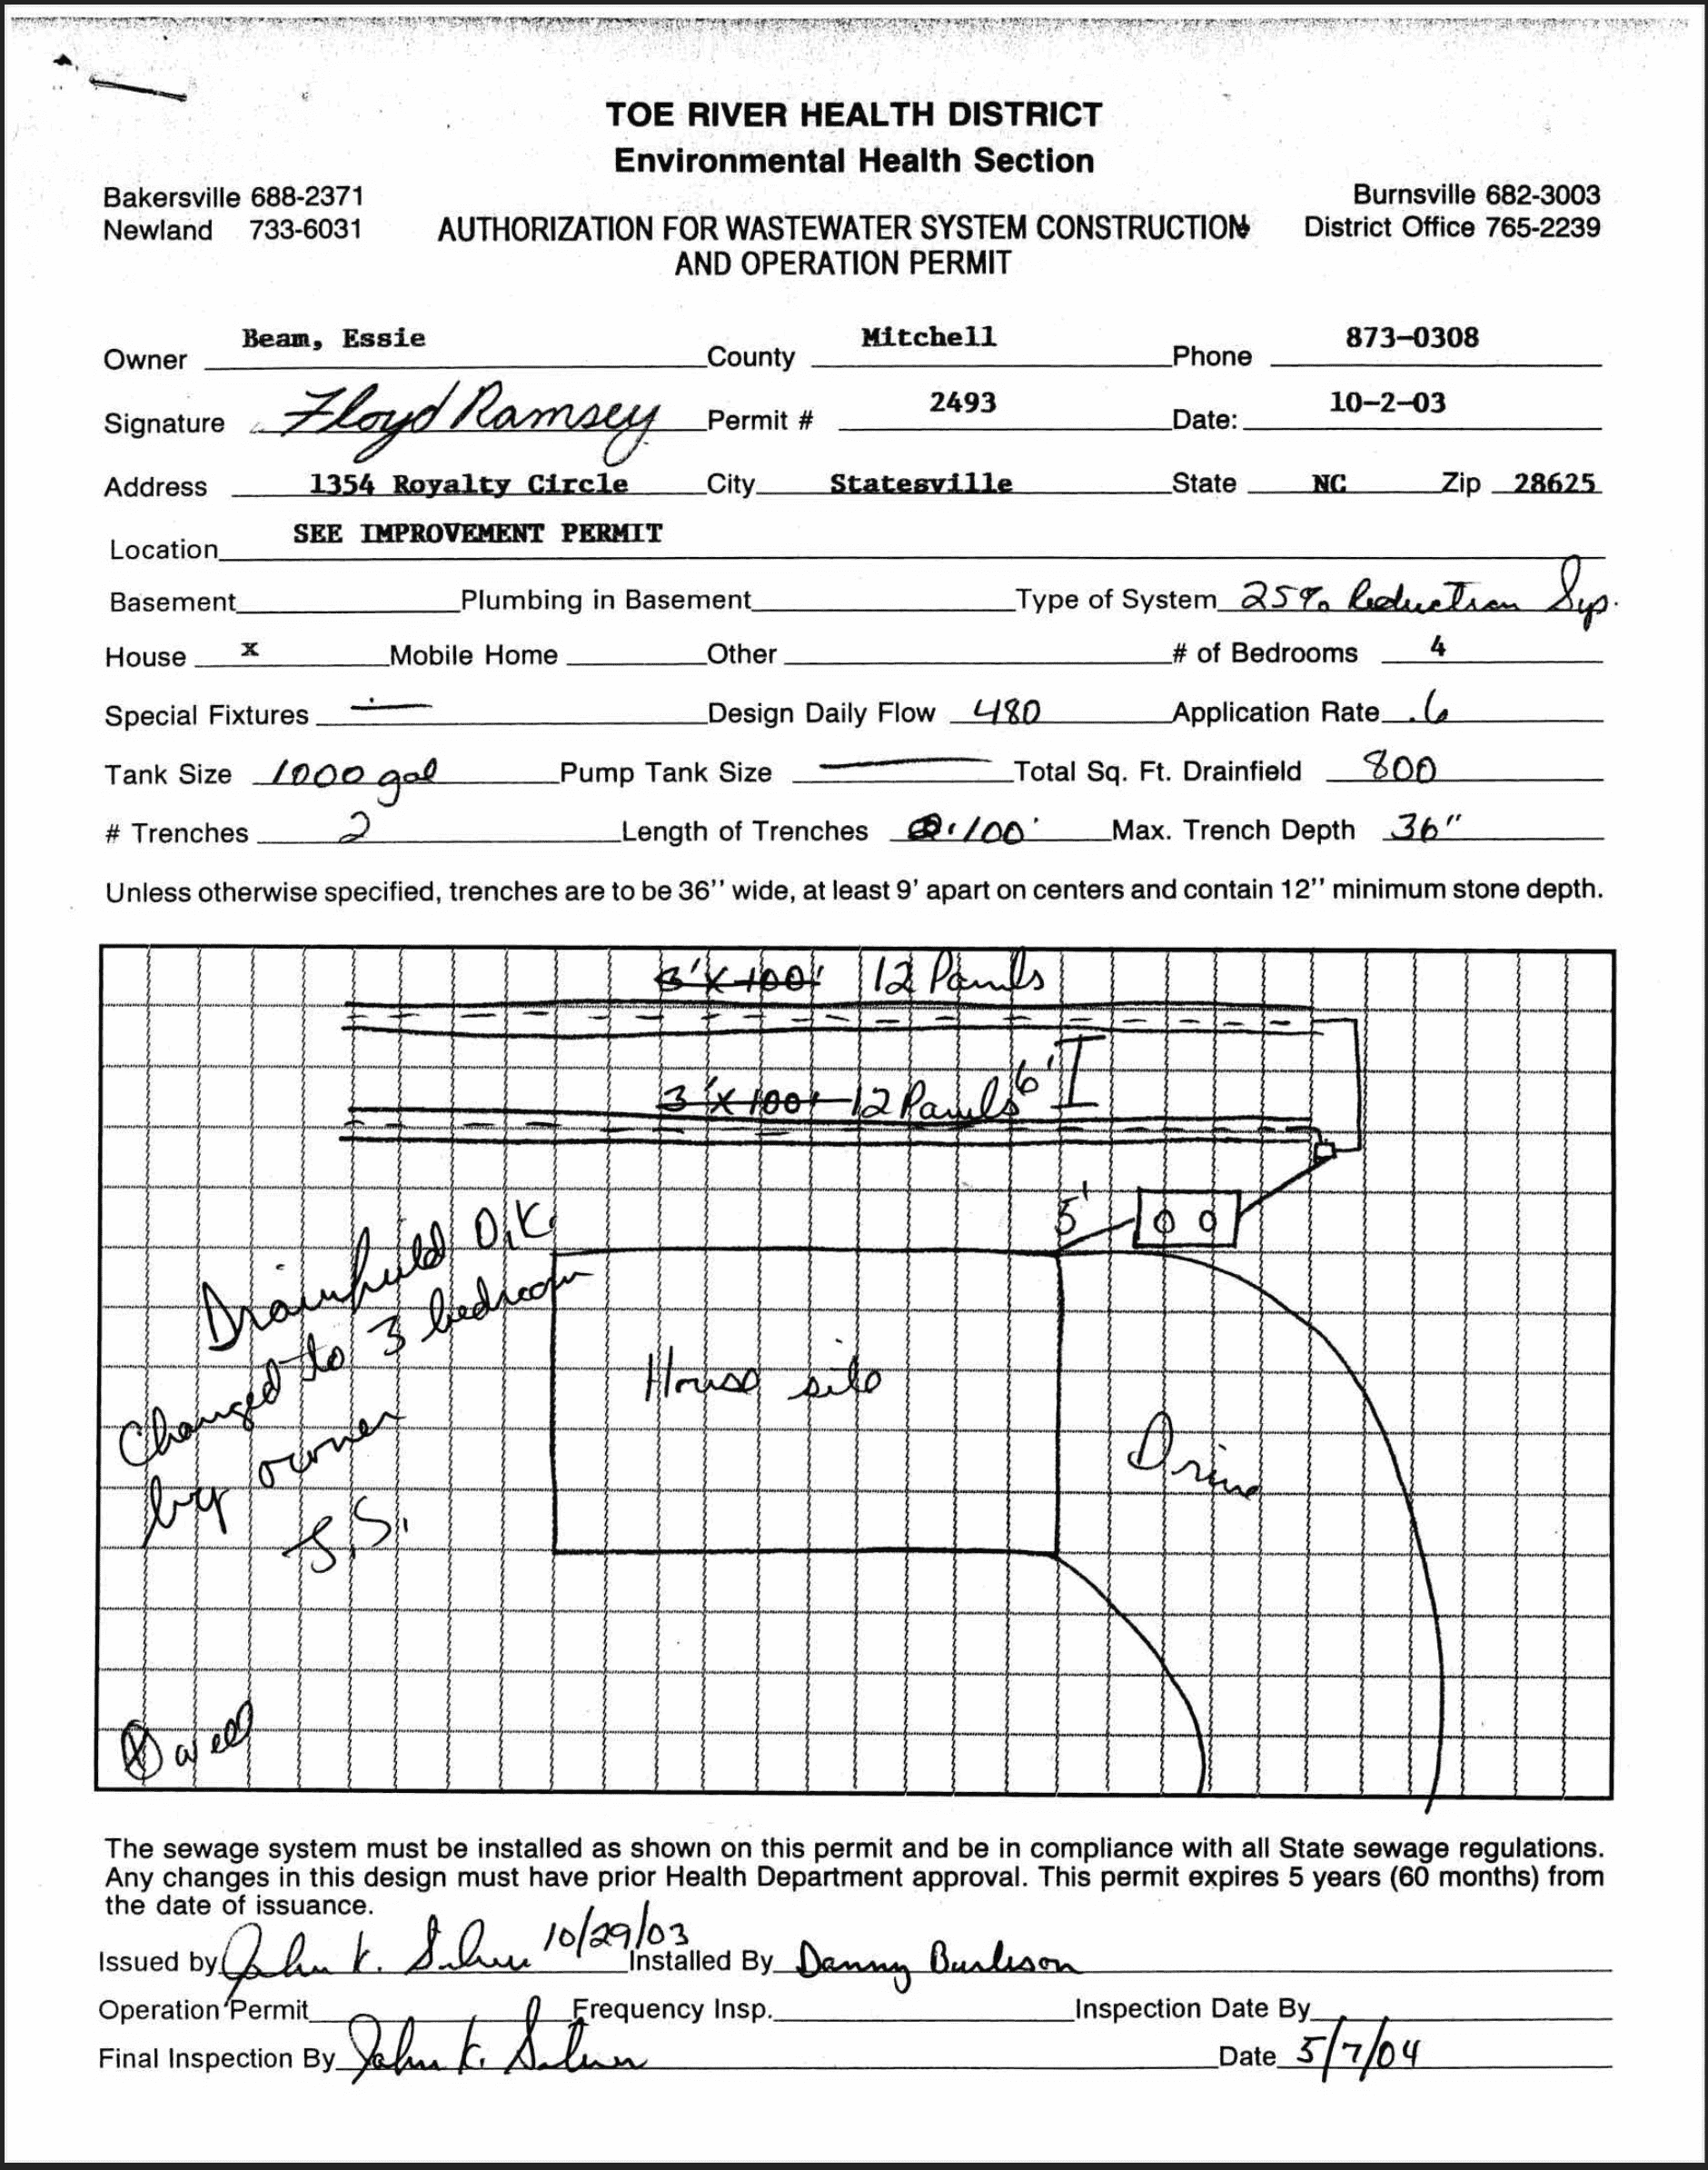 TOE RIVER HEALTH DISTRICT
Environmental Health Section
Bakersville 688-2371
Newland 733-6031
Burnsville 682-3003
District Office 765-2239
AUTHORIZATION FOR WASTEWATER SYSTEM CONSTRUCTION
AND OPERATION PERMIT
Owner Beam, Essie County Mitchell Phone 873-0308
Signature Floyd Ramsey Permit # 2493 Date: 10-2-03
Address 1354 Royalty Circle City Statesville State NC Zip 28625
Location SEE IMPROVEMENT PERMIT
Basement Plumbing in Basement Type of System 25% Reduction Sys.
House x Mobile Home Other # of Bedrooms 4
Special Fixtures — Design Daily Flow 480 Application Rate .6
Tank Size 1000 gal Pump Tank Size — Total Sq. Ft. Drainfield 800
# Trenches 2 Length of Trenches 100' Max. Trench Depth 36"
Unless otherwise specified, trenches are to be 36'' wide, at least 9' apart on centers and contain 12'' minimum stone depth.
3'X100' 12 Panels
6'
3'X100' 12 Panels
5'
Drainfield O.K.
Changed to 3 bedroom
by owner
J.S.
House site
Drive
well
The sewage system must be installed as shown on this permit and be in compliance with all State sewage regulations.
Any changes in this design must have prior Health Department approval. This permit expires 5 years (60 months) from
the date of issuance.
Issued by John K. 10/29/03 Installed By Danny Burleson
Operation Permit Frequency Insp. Inspection Date By
Final Inspection By John K. Date 5/7/04